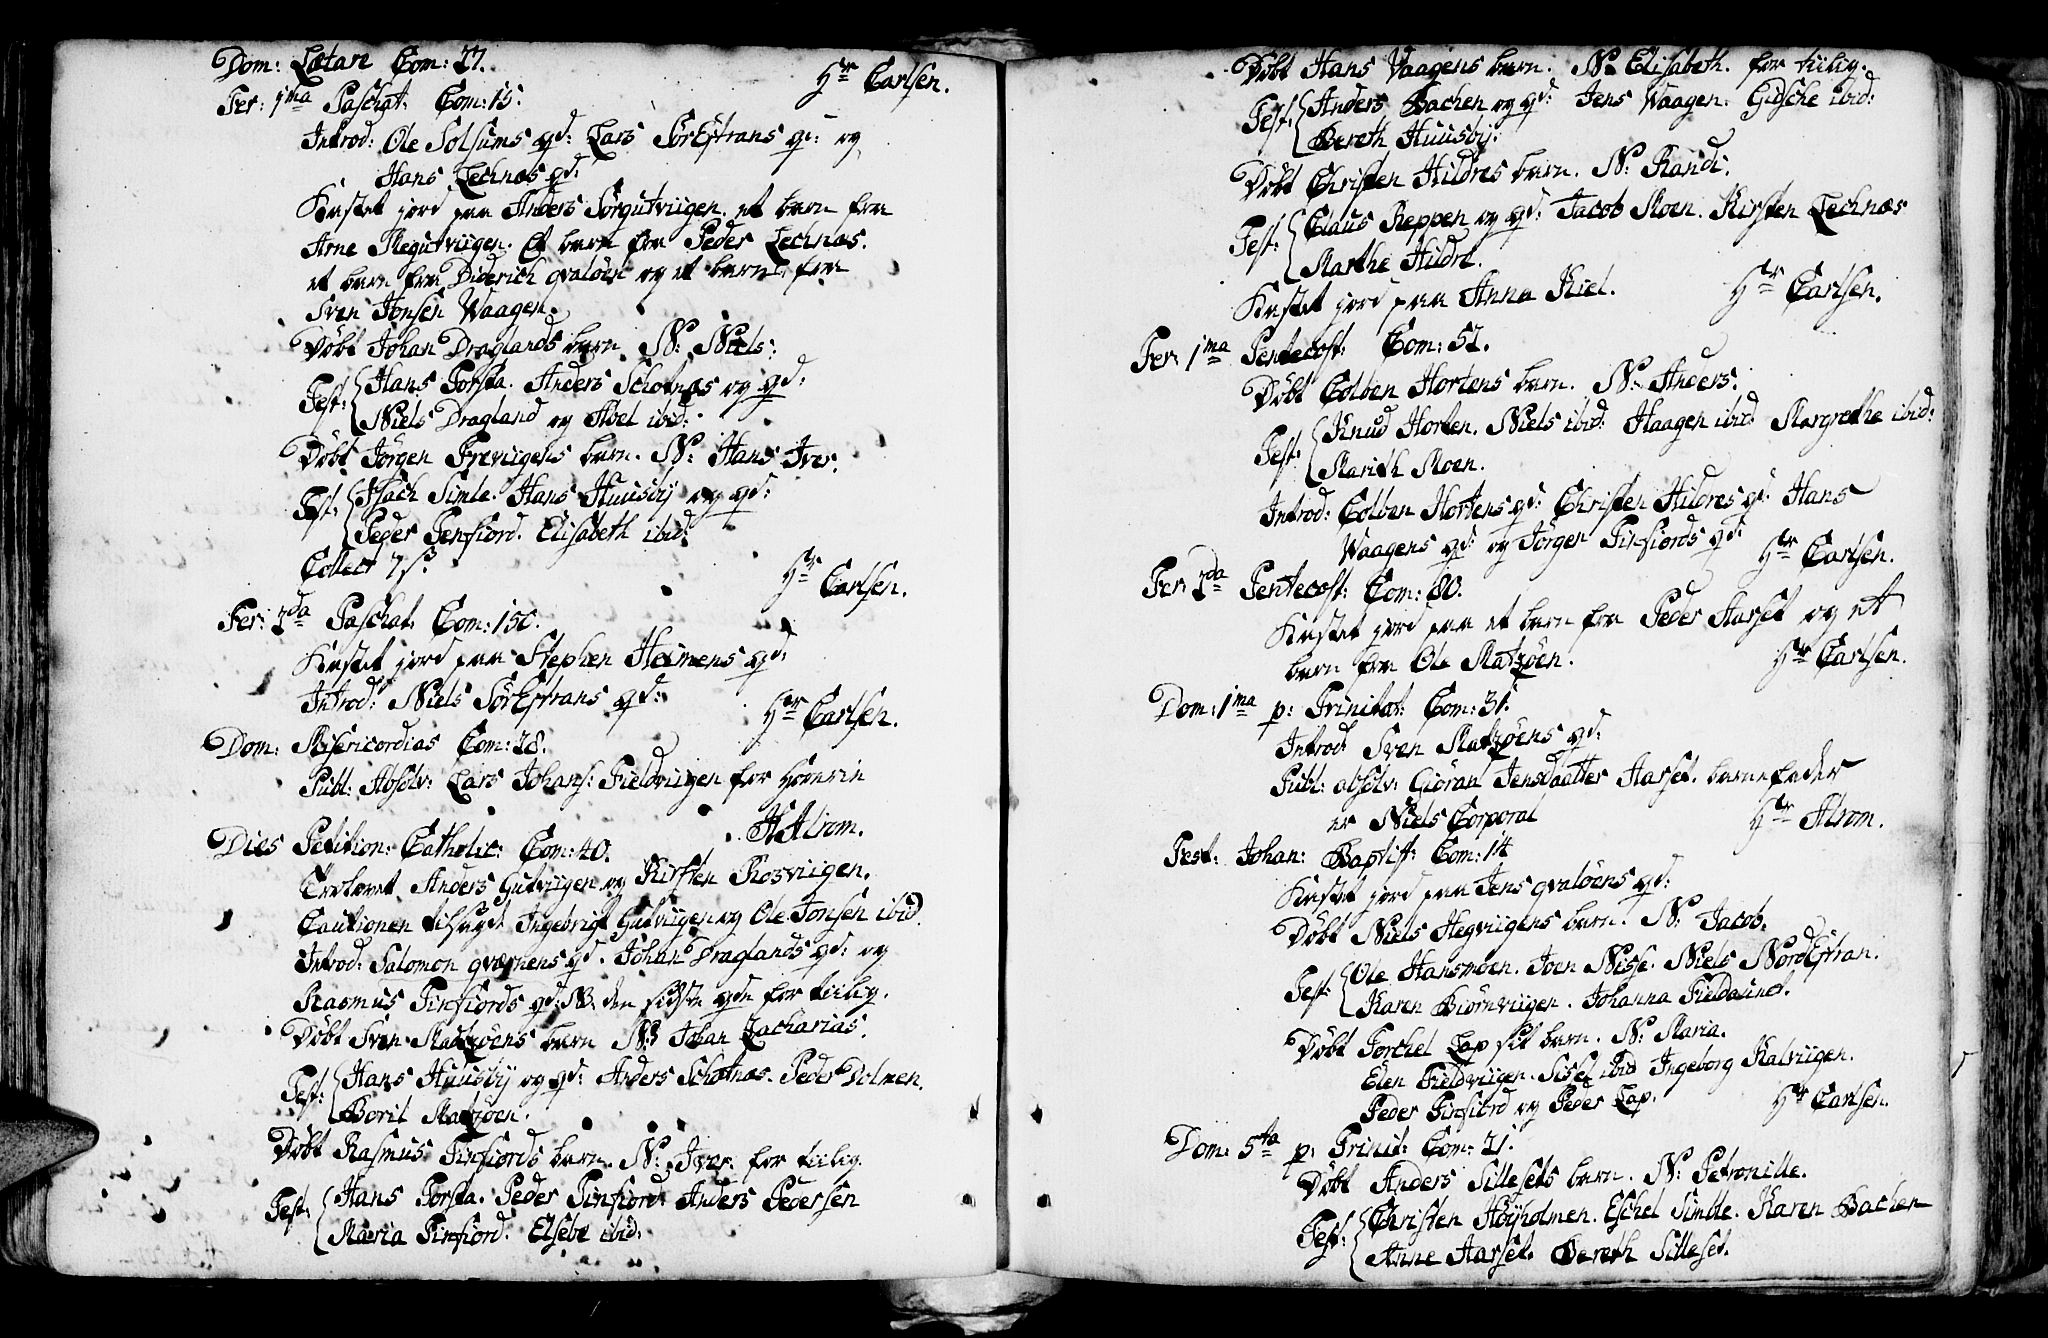 Dom: Lætare Com: 27.
Hr Carlsen.
Fer: 1ma Paschat: Com: 15.
Introd: Ole Solsums qd: Lars Sörgstrans qd: og
Hans Lechnæs qd:
Kastet jord paa Anders Sörgutviigen. et barn fra
Arne Hegutviigen. Et barn fra Peder Lechnæs.
et barn fra Diderich qvalöen og et barn fra
Sven Jonsen Waagen.
Döbt Johan Draglands barn N: Niels:
Test: Hans Forsta. Anders Schotnæs og qd:
Niels Dragland og Abel ibid:
Döbt Jörgen Freviigens barn. N: Hans Iver.
Test: Isach Simle. Hans Huusby og qd:
Peder Tenfiord. Elisabeth ibid:
Collect 7 s.
Hr Carlsen.
Fer: 2da Paschat. Com: 150.
Kastet jord paa Stephen Heimens qd:
Introd: Niels Sörgstrans qd:
Hr Carlsen.
Dom: Misericordias Com: 28.
Publ: Absolv: Lars Johans: Fieldviigen for hoererie
H Alrom.
Dies Petition: Catholic: Com: 40.
Trolovet Anders Gutviigen og Kirsten Rosviigen.
Cautionen tilsagt Ingebrigt Gutviigen og Ole Jonsen ibid
Introd: Salomon qværnens qd. Johan Draglands qd: og
Rasmus Finfiords qd: NB. den sidste qde for tiilig.
Döbt Sven Matzöens barn N: Johan Zacharias.
Test: Hans Huusby og qd: Anders Schotnæs. Peder Dolmen.
Borit Matzöen.
Döbt Rasmus Finfiords barn. N: Iver. for tiilig.
Test: Hans Forsta. Peder Finfiord. Anders Pedersen
Maria Finfiord. Elsebe ibid:
Döbt Hans Vaagens barn. N: Elisabeth. for tiilig.
Test: Anders Bachen og qd: Jens Waagen. Gidsche ibid:
Bereth Huusby:
Döbt Christen Hildres barn. N: Randi.
Test: Claus Reppen og qd: Jacob Moen. Kirsten Lechnæs
Marthe Hildre.
Kastet jord paa Anna Kiel.
Hr Carlsen.
Fer: 1ma Pentecost: Com: 52.
Döbt Colben Hortens barn. N: Anders.
Test: Knud Horten. Niels ibid: Haagen ibid Margrethe ibid:
Marith Moen.
Introd: Colben Hortens qd: Christen Hildres qd: Hans
Waagens qd: og Jörgen Finfiords qd:
Hr Carlsen.
Fer: 2da Pentecost: Com: 80.
Kastet jord paa et barn fra Peder Harset og et
barn fra Ole Matzöen.
Hr Carlsen.
Dom: 1ma p: Trinitat: Com: 31.
Introd: Sven Matzöens qd:
Publ: absolv: Giöran Jensdaatter Harset. barnefader
er Niels Corporal
Hr Alrom.
Fest: Johan: Baptist: Com: 14
Kastet jord paa Jens qvalöens qd:
Döbt Niels Hegviigens barn. N: Jacob.
Test: Ole Hansmoen. Joen Nisse. Niels Nordgstran.
Karen Biörnviigen. Johanna Fieldaunet.
Döbt Torchel Lap sit barn. N: Maria.
Elen Fieldviigen. Sisel ibid Ingeborg Kalviigen.
Peder Finfiord og Peder Lap.
Hr Carlsen.
Dom: 5ta p: Trinit: Com: 21.
Döbt Anders Sillesets barn. N: Petronille.
Test: Christen Höyholmen. Eschel Simble. Karen Bachen
Anne Harset. Bereth Silleset.